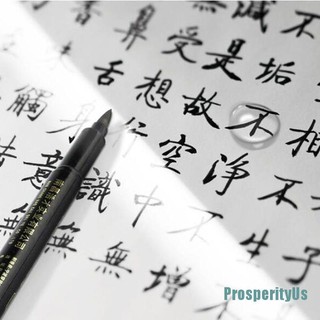 子
相不生不
不垢不淨不增
減是故空中無
受想行識無
鼻舌身意無
香味觸
ProsperityUs